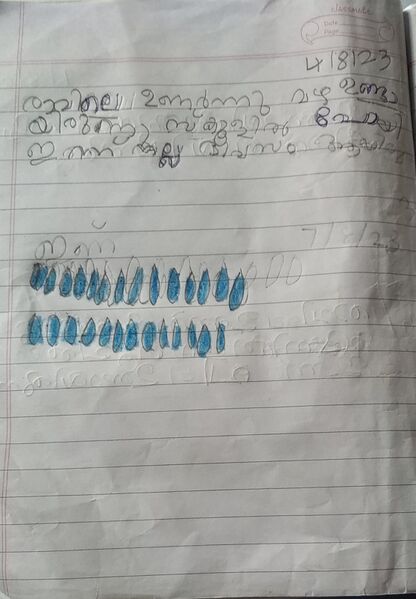 classmate
Date
Page
4/8/23
രാവിലെ ഉണർന്നു മഴ ഉണ്ടാ
യിരുന്നു സ്കൂളിൽ പോയി
ഇന്ന് നല്ല ദിവസം
ഇന്ന് 7/8/23